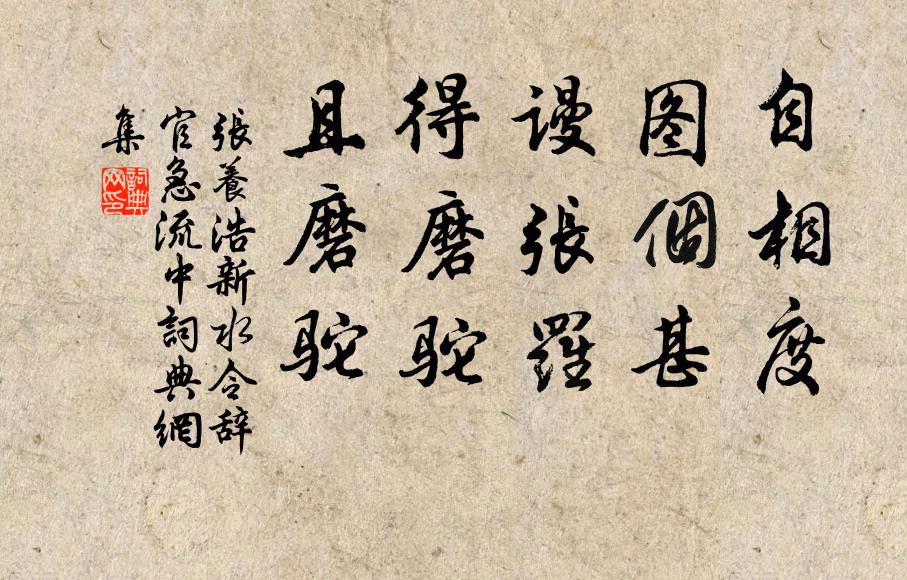 自相度
图個甚
謾張羅
得磨驼
且磨驼
張養浩新水令辞
官急流中詞典網
集
詞典
网印